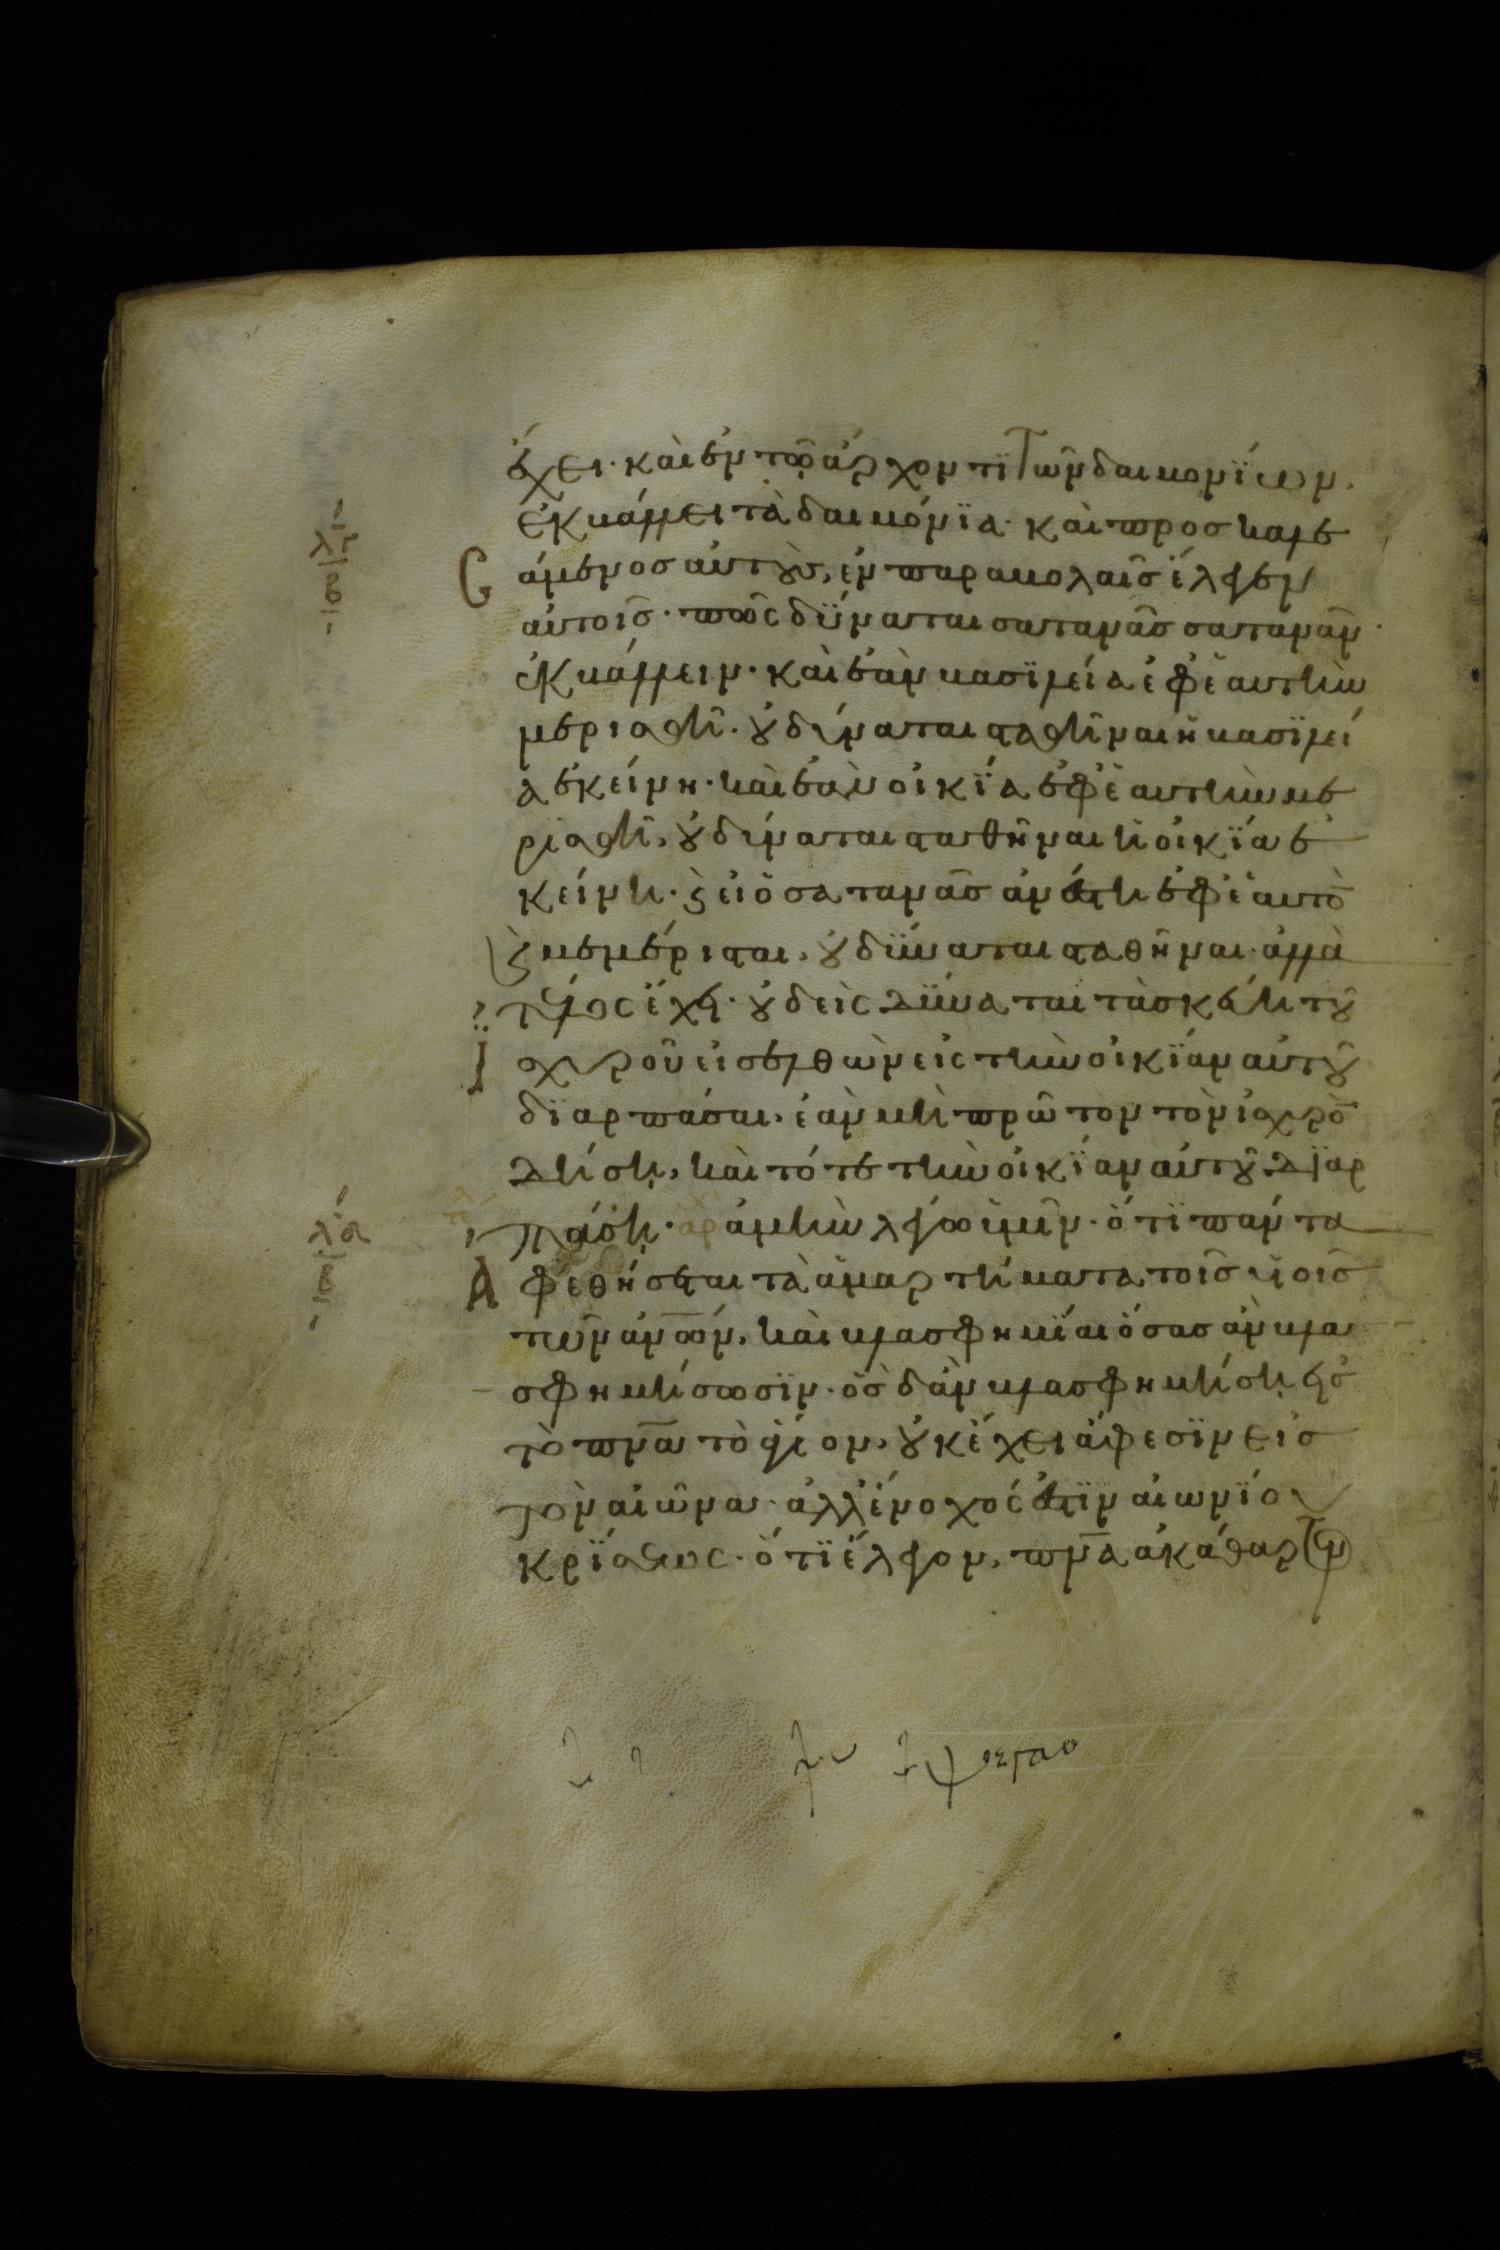 ἔχει· καὶ ἐν τῷ ἄρχοντι τῶν δαιμονΐων
ἐκβάλλει τὰ δαιμόνϊα· καὶ προσκαλε
σάμενος αὐτοὺς, ἐν παραβολαῖς ἔλεγεν
αὐτοῖς· πῶς δύναται σατανᾶς σατανᾶν
ἐκβάλλειν· καὶ ἐὰν βασϊλεία ἐφ' ἑαυτὴν
μερισθῇ· οὐ δύναται σταθῆναι ἡ βασϊλεί
α ἐκείνη· καὶ ἐὰν οἰκΐα ἐφ' ἑαυτὴν με
ρϊσθῇ, οὐ δύναται σταθῆναι ἡ οἰκΐα ἐ
κείνη· καὶ εἰ ὁ σατανᾶς ἀνέστη ἐφ' ἑαυτὸ
καὶ μεμέρισται, οὐ δύναται σταθῆναι· ἀλλὰ
τέλος ἔχει· οὐδεὶς δύναται τὰ σκεύη τοῦ
ἰσχυροῦ εἰσελθὼν εἰς τὴν οἰκΐαν αὐτοῦ
δϊαρπάσαι, ἐὰν μὴ πρῶτον τὸν ἰσχυρὸ
δήσῃ, καὶ τότε τὴν οἰκΐαν αὐτοῦ δϊαρ
πάσῃ· ἀμὴν λέγω ὑμῖν· ὅτϊ πάντα
ἀφεθήσεται τὰ ἁμαρτήματα τοῖς υἱοῖς
τῶν ἀνων, καὶ βλασφημΐαι ὅσας ἂν βλα
σφημήσωσϊν· ὃς δ' ἂν βλασφημήσῃ εἰς
τὸ πνα τὸ ἅγιον, οὐκ ἔχει ἄφεσϊν εἰς
τὸν αἰῶνα· ἀλλ' ἔνοχός ἐστϊν αἰωνΐου
κρΐσεως· ὅτϊ ἔλεγον, πνα ἀκάθαρτον